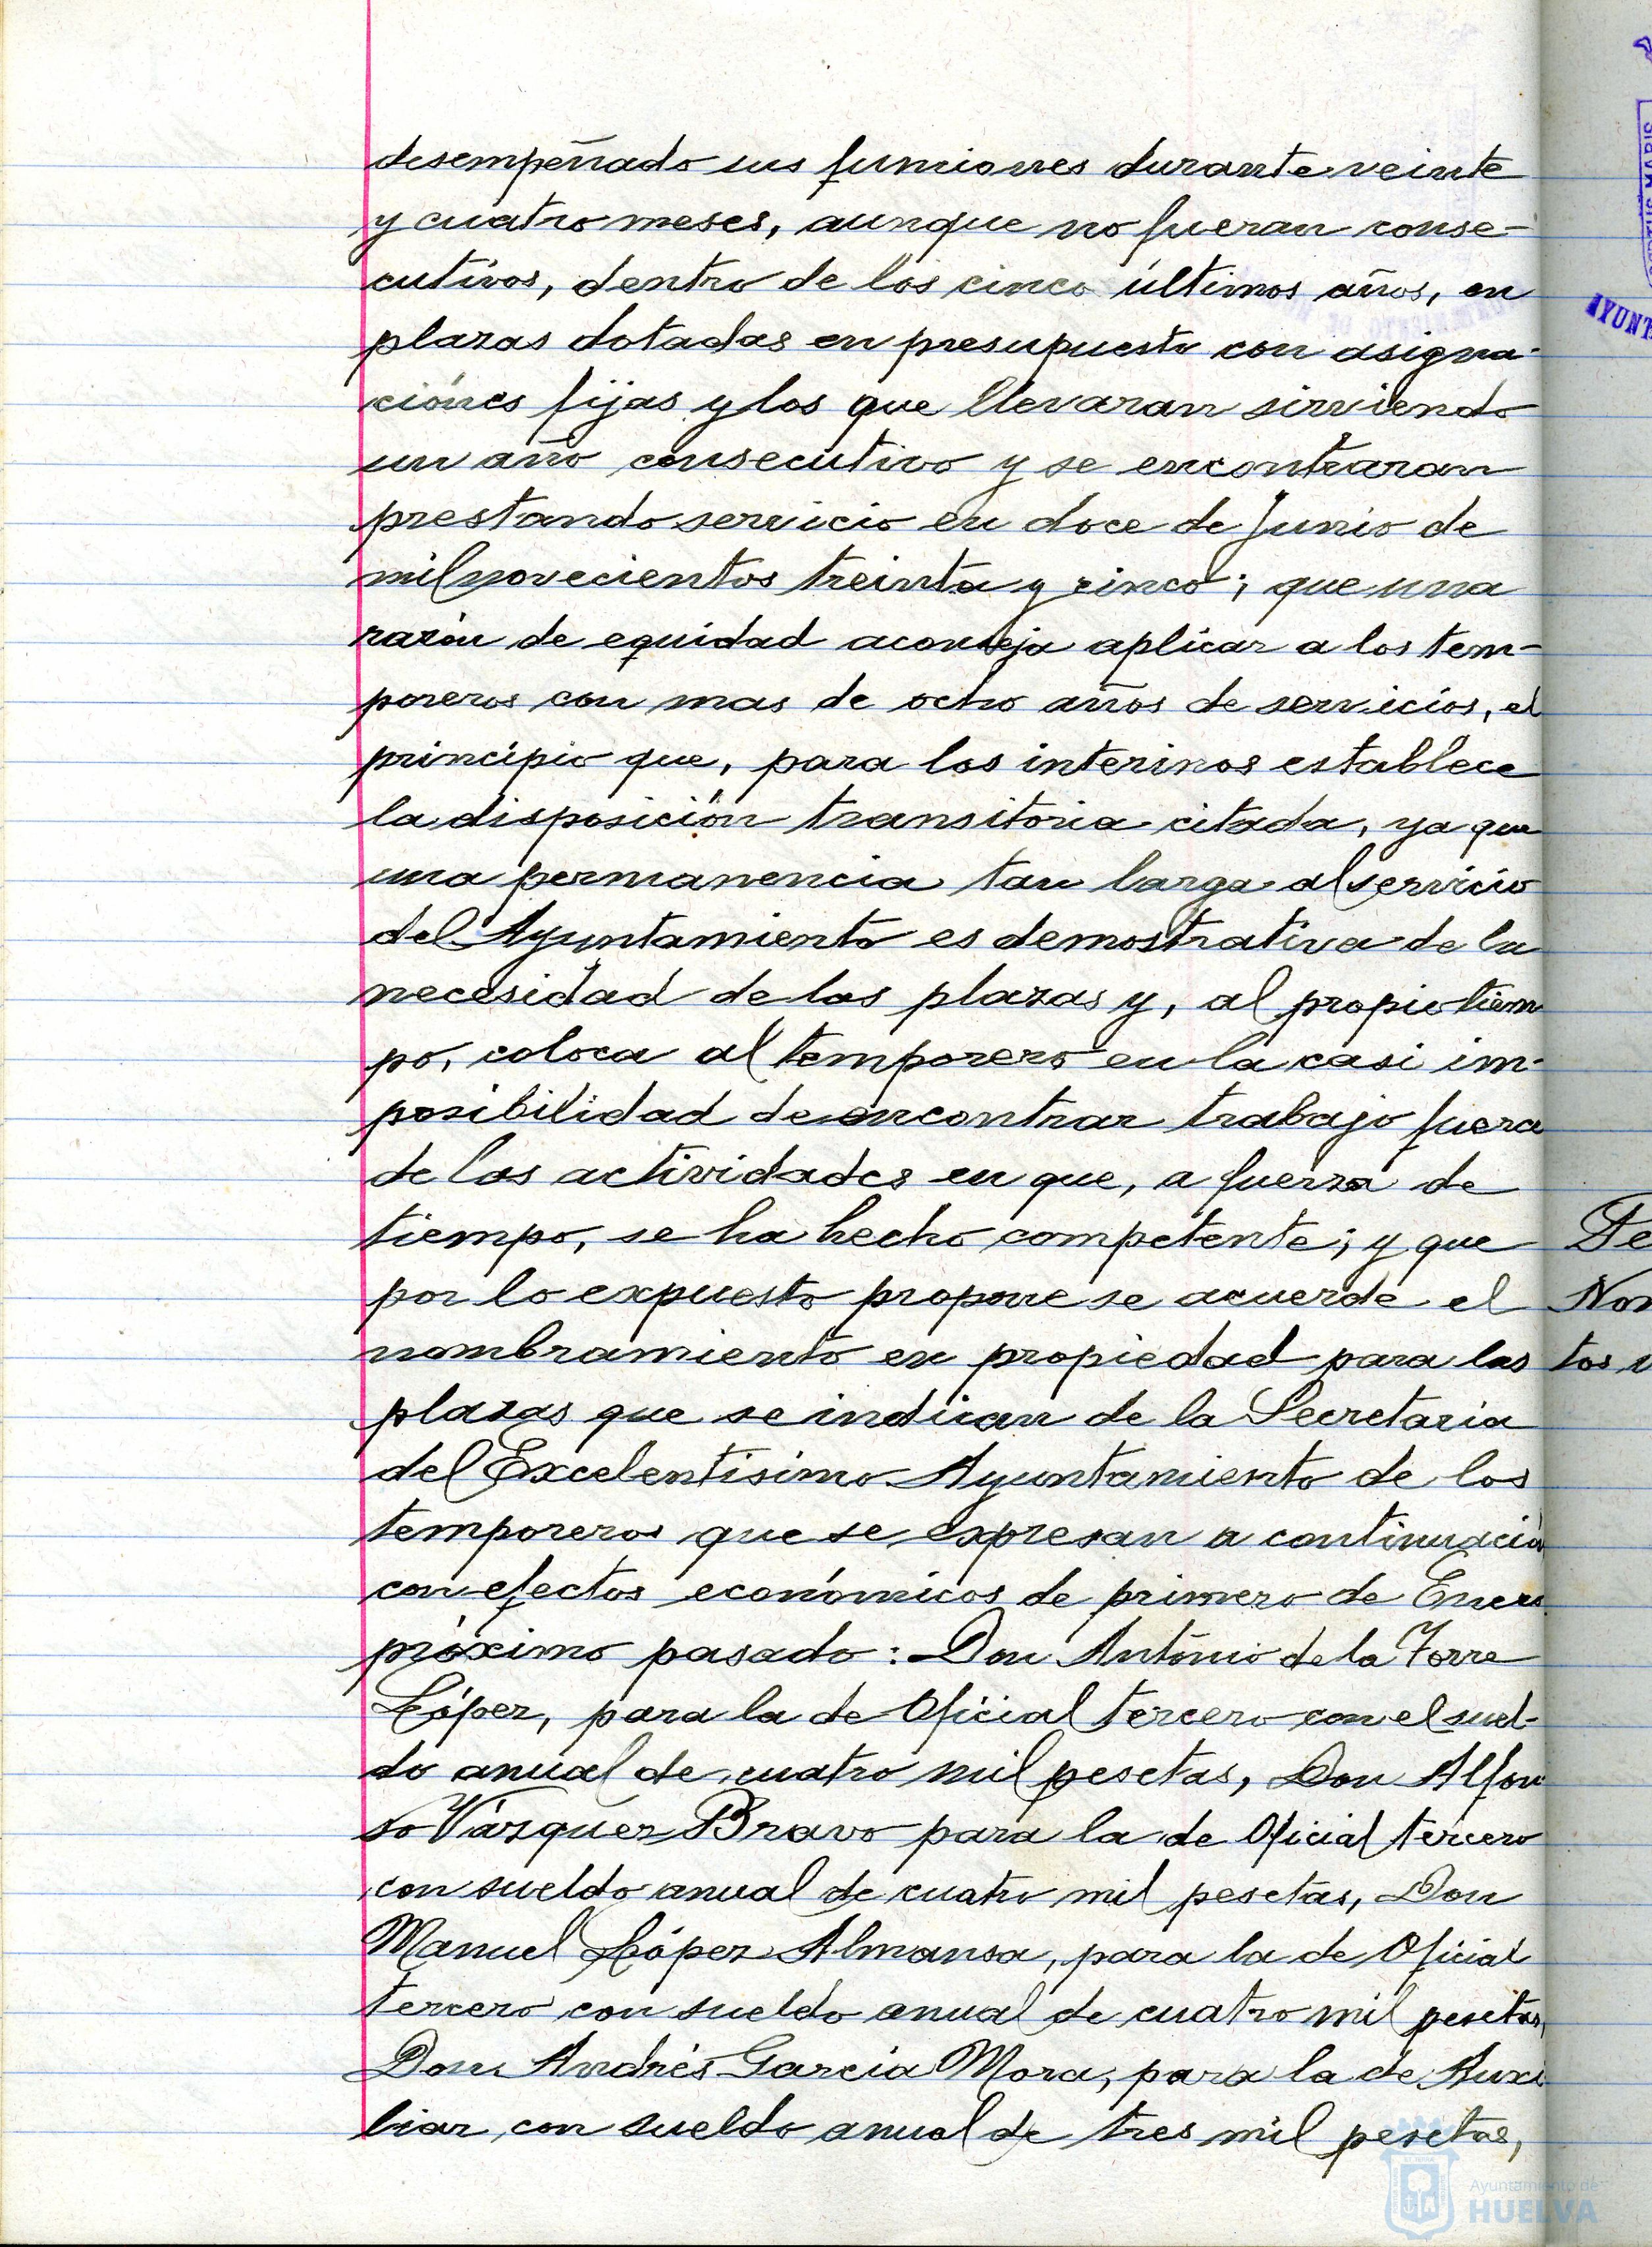 desempeñado sus funciones durante veinte
y cuatro meses, aunque no fueran conse-
cutivos, dentro de los cinco últimos años, en
plazas dotadas en presupuesto con asigna-
ciónes fijas y los que llevaran sirviendo
un año consecutivo y se encontraran
prestando servicio en doce de Junio de
mil novecientos treinta y cinco; que una
razón de equidad aconseja aplicar a los tem-
poreros con mas de ocho años de servicios, el
principio que, para los interinos establece
la disposición transitoria citada, ya que
una permanencia tan larga al servicio
del Ayuntamiento es demostrativa de la
necesidad de las plazas y, al propio tiem
po, coloca al temporero en la casi im-
posibilidad de encontrar trabajo fuera
de las actividades en que, a fuerza de
tiempo, se ha hecho competente; y que
por lo expuesto propone se acuerde el
nombramiento en propiedad para las
plazas que se indican de la Secretaria
del Excelentisimo Ayuntamiento de los
temporeros que se expresan a continuación
con efectos económicos de primero de Enero
próximo pasado: Don António de la Torre
López, para la de Oficial tercero con el suel-
do anual de cuatro mil pesetas, Don Alfon
so Vázquez Bravo para la de Oficial tercero
con sueldo anual de cuatro mil pesetas, Don
Manuel López Almansa, para la de Oficial
tercero con sueldo anual de cuatro mil pesetas,
Don Andrés Garcia Mora, para la de Auxi
liar con sueldo anual de tres mil pesetas,
De
Nom
tos
MARIS
AYUNT
Ayuntamiento de
HUELVA